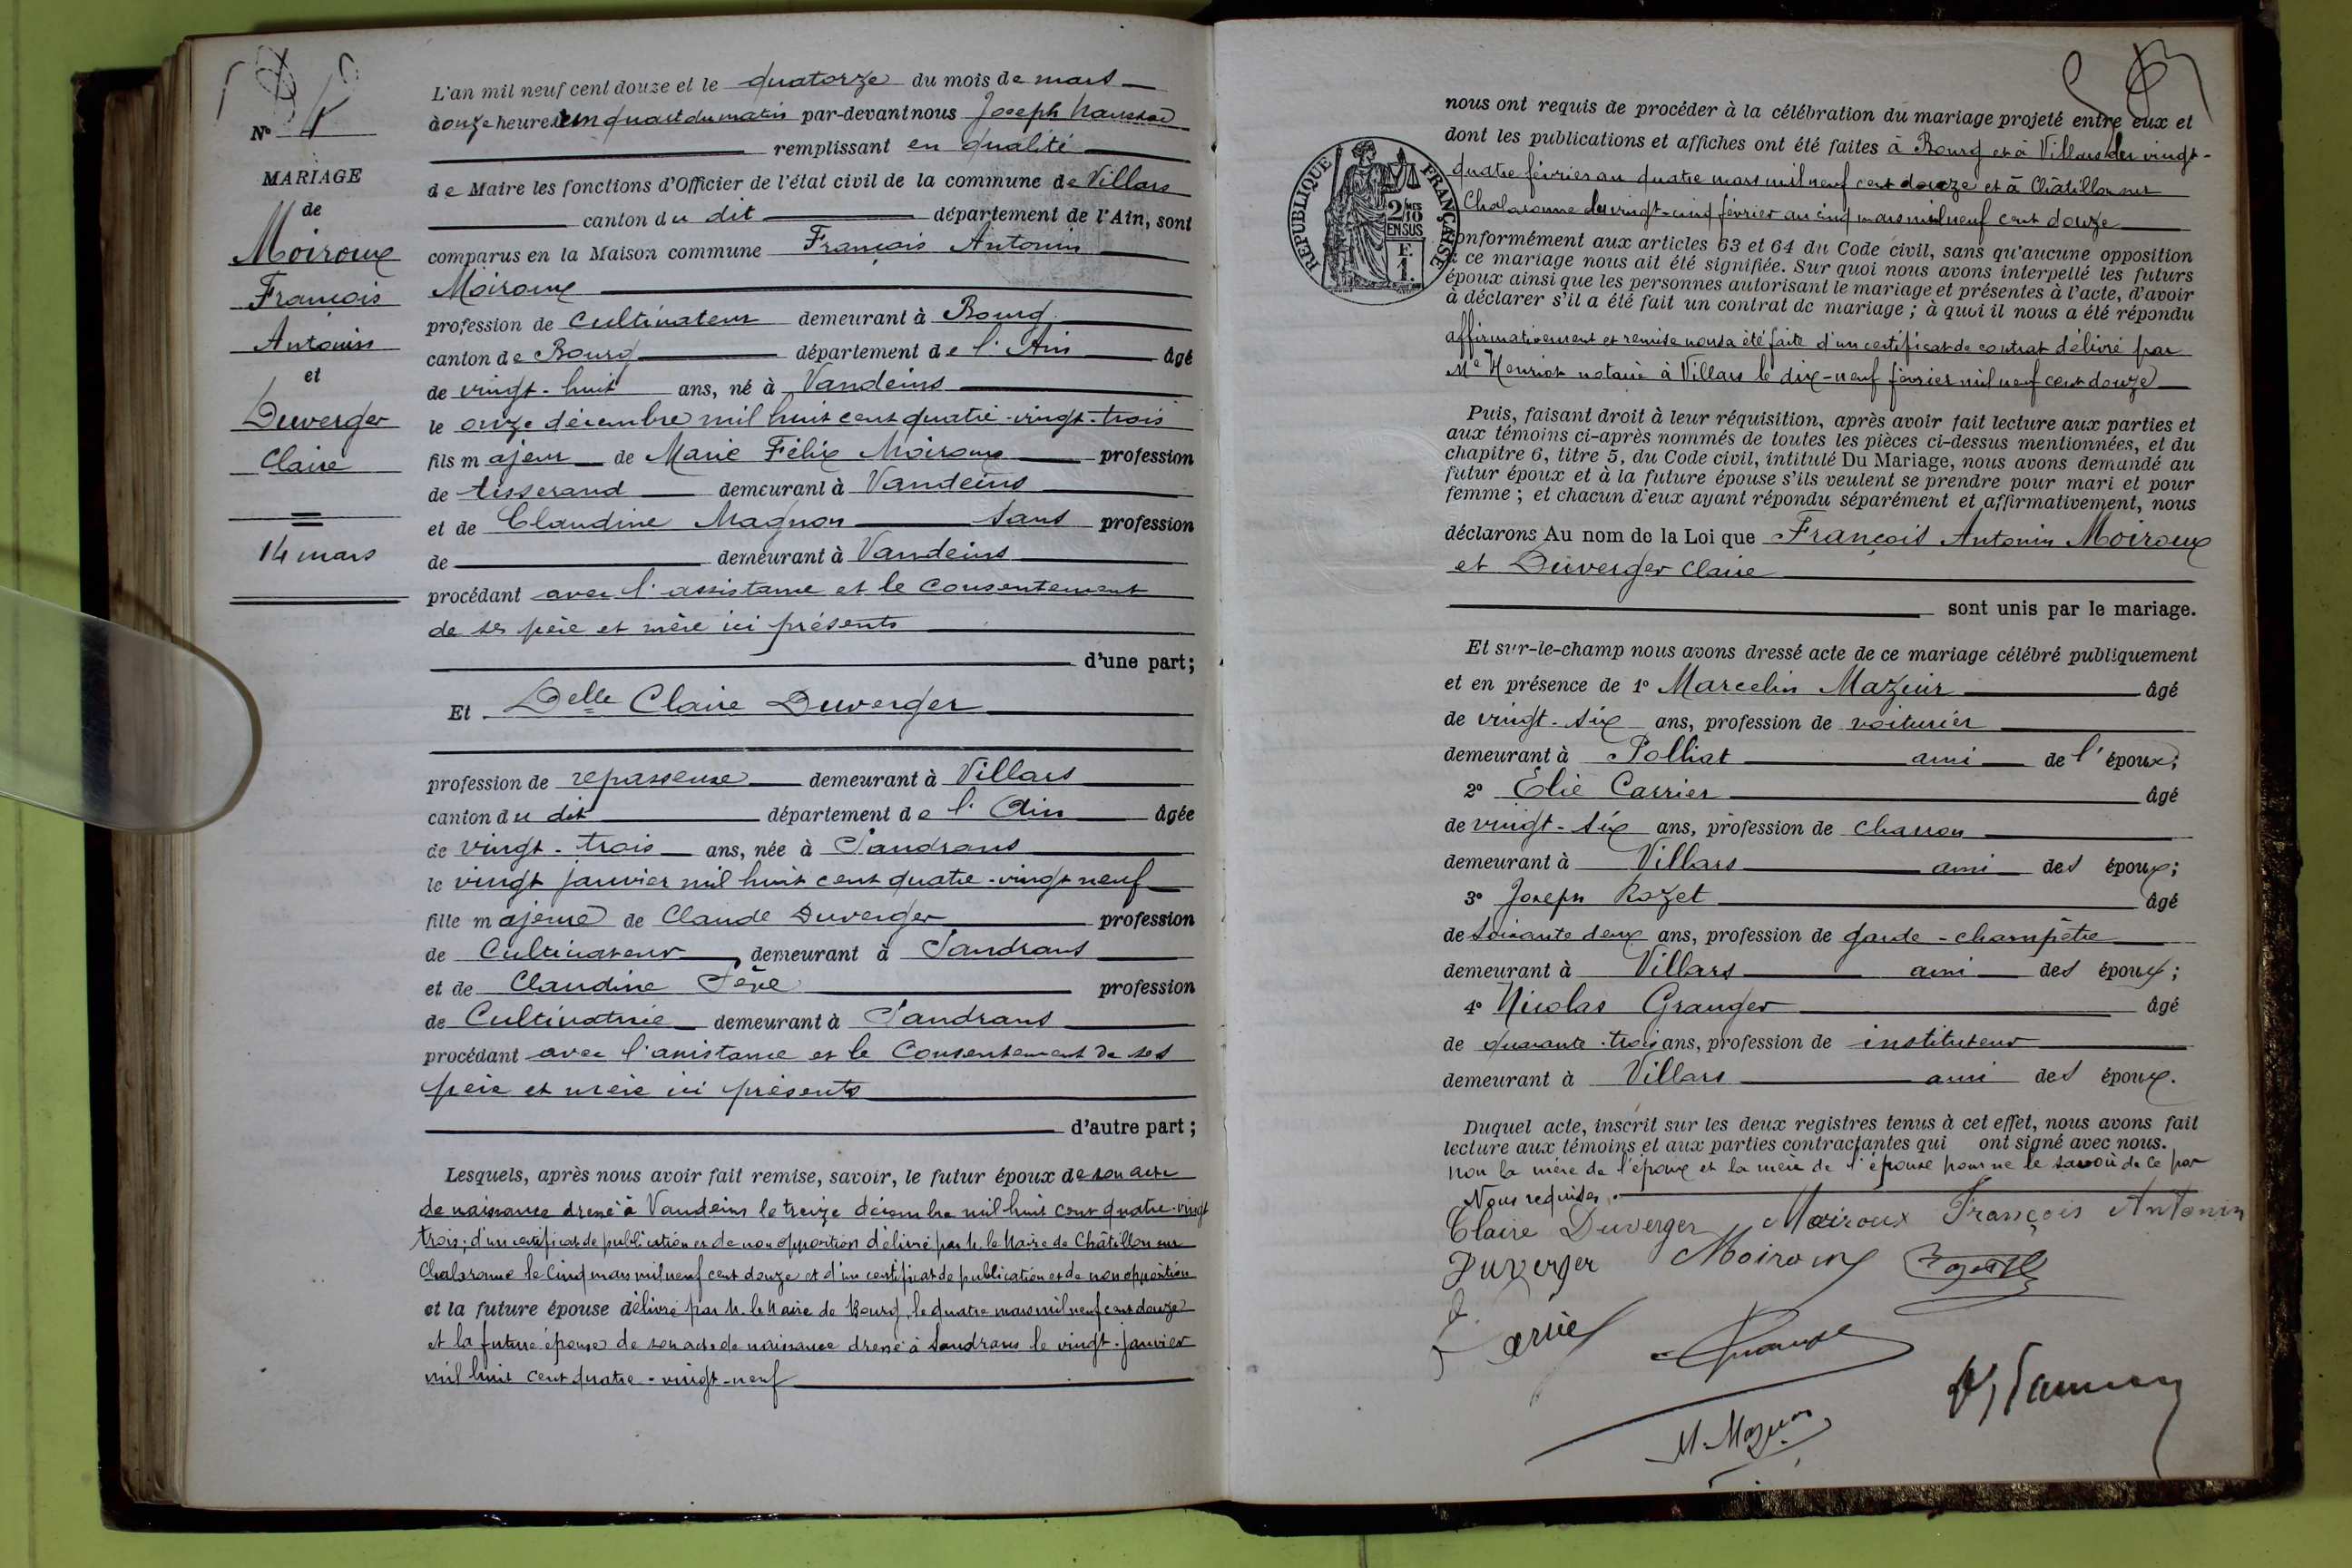 L'an mil neuf cent douze et le quatorze du mois de mars
à onze heures un quart du matin par-devant nous Joseph
remplissant en qualité
de Maire les fonctions d'Officier de l'état civil de la commune de Villars
canton du dit département de l'Ain, sont
comparus en la Maison commune François Antonin
Moiroux
profession de Cultivateur demeurant à Bourg
canton de Bourg département de l'Ain âgé
de vingt-huit ans, né à Vandeins
le onze décembre mil huit cent quatre-vingt-trois
fils majeur de Marie Félix Moiroux profession
de tisserand demeurant à Vandeins
et de Claudine Magnon sans profession
de demeurant à Vandeins
procédant avec l'assistance et le consentement
de ses père et mère ici présents
d'une part;
Et Delle Claire Duverger
profession de repasseuse demeurant à Villars
canton du dit département de l'Ain âgée
de vingt-trois ans, née à Sandrans
le vingt janvier mil huit cent quatre-vingt neuf
fille majeure de Claude Duverger profession
de Cultivateur demeurant à Sandrans
et de Claudine profession
de Cultivatrice demeurant à Sandrans
procédant avec l'assistance et le Consentement de ses
père et mère ici présents
d'autre part;
Lesquels, après nous avoir fait remise, savoir, le futur époux de son acte
de naissance dressé à Vandeins le treize décembre mil huit cent quatre-vingt
trois; d'un certificat de publication et de non opposition délivré par M. le Maire de Châtillon sur
Chalaronne le cinq mars mil neuf cent douze et d'un certificat de publication et de non opposition
et la future épouse délivré par M. le Maire de Bourg, le quatre mars mil neuf cent douze
et la future épouse de son acte de naissance dressé à Sandrans le vingt-janvier
mil huit cent quatre-vingt-neuf
N°
MARIAGE
de
Moiroux
François
Antonin
et
Duverger
Claire
14 mars
nous ont requis de procéder à la célébration du mariage projeté entre eux et
dont les publications et affiches ont été faites à Bourg et à Villars du vingt-
quatre février au quatre mars mil neuf cent douze et à Châtillon sur
Chalaronne du vingt-cinq février au cinq mars mil neuf cent douze
conformément aux articles 63 et 64 du Code civil, sans qu'aucune opposition
à ce mariage nous ait été signifiée. Sur quoi nous avons interpellé les futurs
époux ainsi que les personnes autorisant le mariage et présentes à l'acte, d'avoir
à déclarer s'il a été fait un contrat de mariage; à quoi il nous a été répondu
affirmativement et remise nous a été faite d'un certificat de contrat délivré par
Me Henriot notaire à Villars le dix-neuf février mil neuf cent douze
Puis, faisant droit à leur réquisition, après avoir fait lecture aux parties et
aux témoins ci-après nommés de toutes les pièces ci-dessus mentionnées, et du
chapitre 6, titre 5, du Code civil, intitulé Du Mariage, nous avons demandé au
futur époux et à la future épouse s'ils veulent se prendre pour mari et pour
femme; et chacun d'eux ayant répondu séparément et affirmativement, nous
déclarons Au nom de la Loi que François Antonin Moiroux
et Duverger Claire
sont unis par le mariage.
Et sur-le-champ nous avons dressé acte de ce mariage célébré publiquement
et en présence de 1° Marcelin Mazuir âgé
de vingt-six ans, profession de voiturier
demeurant à Polliat ami de l'époux;
2° Elie Carrier âgé
de vingt-six ans, profession de charron
demeurant à Villars ami des époux;
3° Joseph Rozet âgé
de soixante deux ans, profession de garde-champêtre
demeurant à Villars ami des époux;
4° Nicolas Granger âgé
de quarante-trois ans, profession de instituteur
demeurant à Villars ami des époux.
Duquel acte, inscrit sur les deux registres tenus à cet effet, nous avons fait
lecture aux témoins et aux parties contractantes qui ont signé avec nous.
non la mère de l'époux et la mère de l'épouse pour ne le savoir de ce par
Nous requises.
Claire Duverger Moiroux François Antonin
Duverger Moiroux
M. Mazuir
REPUBLIQUE FRANÇAISE
2/10 EN SUS
F. 1.